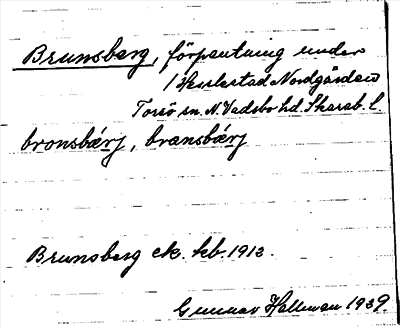 Brunsberg, förpantning under
1 Hesslestad Nordgården
Torsö sn. N. Vadsbo hd. Skarab. l.
bronsbærj, brænsbærj
Brunsberg ek. kb. 1912.
Gunnar Hallman 1939.